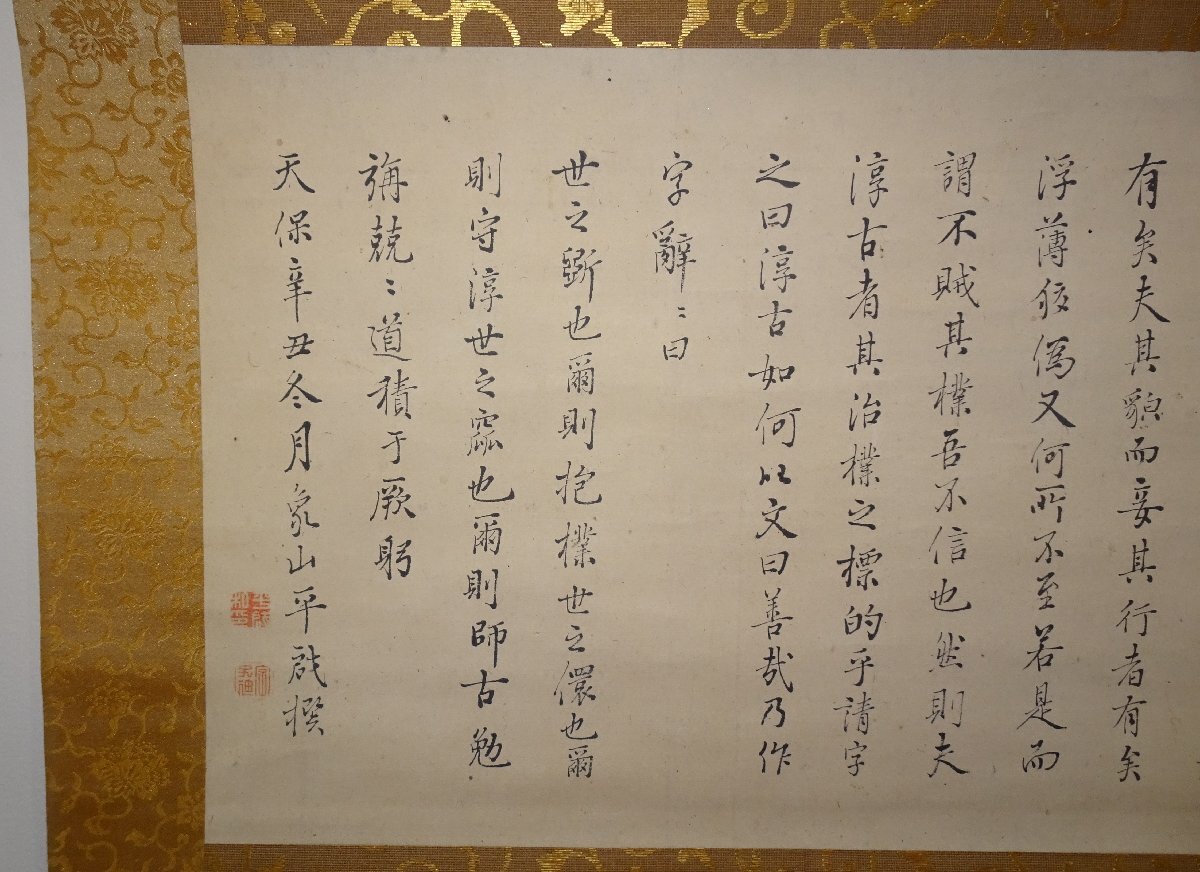 有矣夫其貌而妄其行者有矣
浮薄狡偽又何所不至若是而
謂不賊其樸吾不信也然則夫
淳古者其治樸之標的乎請字
之曰淳古如何以文曰善哉乃作
字辭〻曰
世之斲也爾則抱樸世之儇也爾
則守淳世之窳也爾則師古勉
旃兢〻道積于厥躬
天保辛丑冬月象山平啟撰